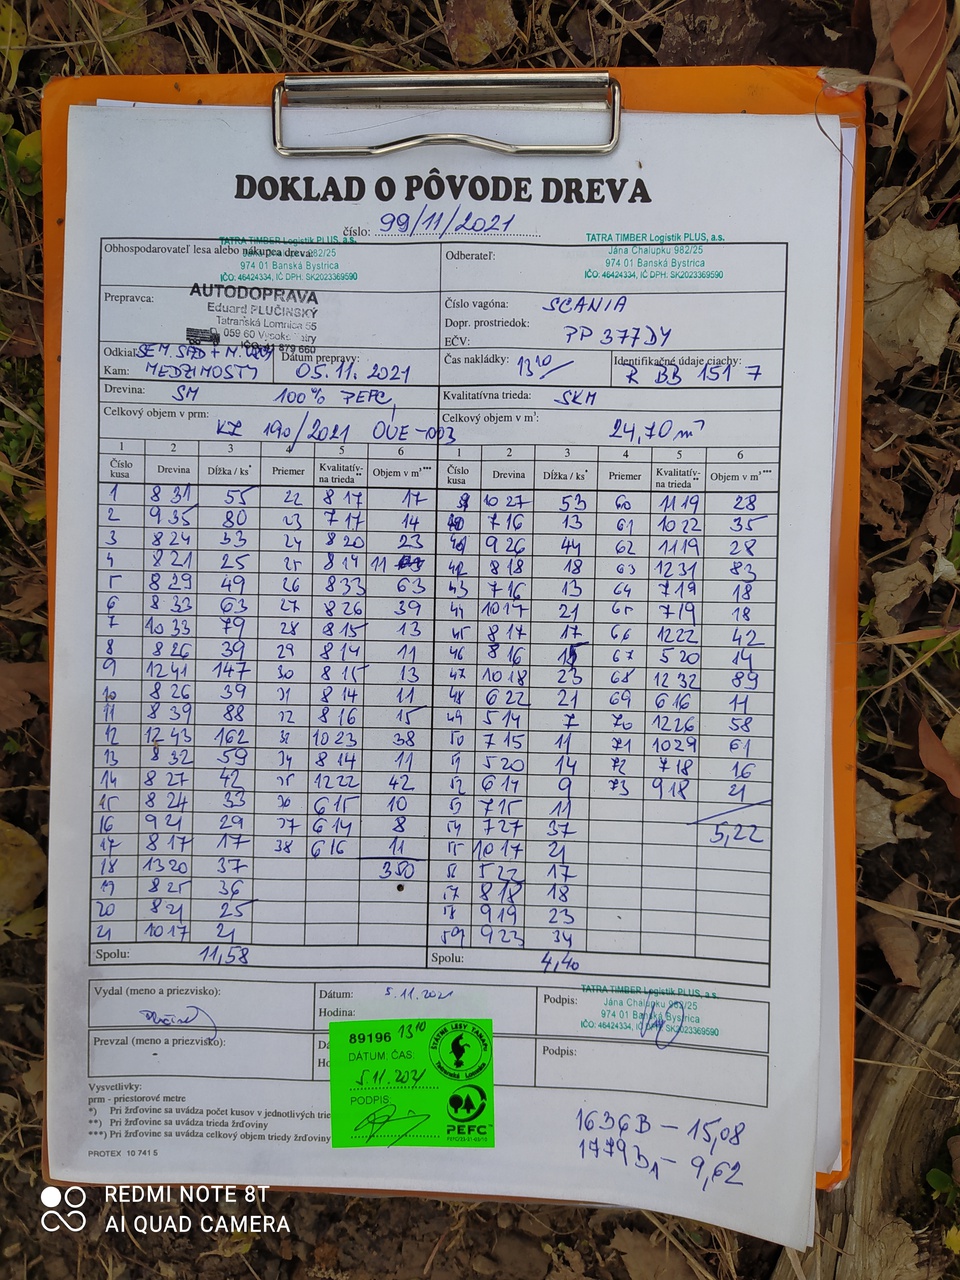 DOKLAD O PÔVODE DREVA
číslo: 99/11/2021
Obhospodarovateľ lesa alebo nákupca dreva:
TATRA TIMBER Logistik PLUS, a.s.
Jána Chalupku 982/25
974 01 Banská Bystrica
IČO: 46424334, IČ DPH: SK2023369590
Odberateľ:
TATRA TIMBER Logistik PLUS, a.s.
Jána Chalupku 982/25
974 01 Banská Bystrica
IČO: 46424334, IČ DPH: SK2023369590
Prepravca:
AUTODOPRAVA
Eduard PLUČINSKÝ
Tatranská Lomnica 55
059 60 Vysoké Tatry
Číslo vagóna: SCANIA
Dopr. prostriedok:
EČV: PP 377DY
Odkiaľ: SEM. SAD + M.
Kam: MEDZIMOSTY
Dátum prepravy:
05.11.2021
Čas nakládky: 13 10
Identifikačné údaje ciachy:
R BB 151 7
Drevina: SM 100% PEFC
Kvalitatívna trieda: SKM
Celkový objem v prm:
KZ 190/2021 OUE-003
Celkový objem v m³:
24,70 m³
1 2 3 4 5 6 1 2 3 4 5 6
Číslo kusa Drevina Dĺžka / ks* Priemer Kvalitatívna trieda** Objem v m³*** Číslo kusa Drevina Dĺžka / ks* Priemer Kvalitatívna trieda** Objem v m³***
1 8 31 55 22 8 17 17 39 10 27 53 60 11 19 28
2 9 35 80 23 7 17 14 40 7 16 13 61 10 22 35
3 8 24 33 24 8 20 23 41 9 26 44 62 11 19 28
4 8 21 25 25 8 14 11 42 8 18 18 63 12 31 83
5 8 29 49 26 8 33 63 43 7 16 13 64 7 19 18
6 8 33 63 27 8 26 39 44 10 17 21 65 7 19 18
7 10 33 79 28 8 15 13 45 8 17 17 66 12 22 42
8 8 26 39 29 8 14 11 46 8 16 15 67 5 20 14
9 12 41 147 30 8 15 13 47 10 18 23 68 12 32 89
10 8 26 39 31 8 14 11 48 6 22 21 69 6 16 11
11 8 39 88 32 8 16 15 49 5 14 7 70 12 26 58
12 12 43 162 33 10 23 38 50 7 15 11 71 10 29 61
13 8 32 59 34 8 14 11 51 5 20 14 72 7 18 16
14 8 27 42 35 12 22 42 52 6 14 9 73 9 18 21
15 8 24 33 36 6 15 10 53 7 15 11
16 9 21 29 37 6 14 8 54 7 27 37 5,22
17 8 17 17 38 6 16 11 55 10 17 21
18 13 20 37 350 56 5 22 17
19 8 25 36 57 8 18 18
20 8 21 25 58 9 19 23
21 10 17 21 59 9 23 34
Spolu: 11,58 Spolu: 4,40
Vydal (meno a priezvisko):
Dátum: 5.11.2021
Hodina:
13 10
Podpis:
TATRA TIMBER Logistik PLUS, a.s.
Jána Chalupku 982/25
974 01 Banská Bystrica
IČO: 46424334, IČ DPH: SK2023369590
Prevzal (meno a priezvisko):
Podpis:
89196
DÁTUM: ČAS:
5.11.2021
PODPIS:
ŠTÁTNE LESY TANAPU
Tatranská Lomnica
PEFC
Vysvetlivky:
prm - priestorové metre
*) Pri žrďovine sa uvádza počet kusov v jednotlivých trie
**) Pri žrďovine sa uvádza trieda žrďoviny
***) Pri žrďovine sa uvádza celkový objem triedy žrďoviny
PROTEX 10 741 5
1636B – 15,08
1779B1 – 9,62
REDMI NOTE 8T
AI QUAD CAMERA